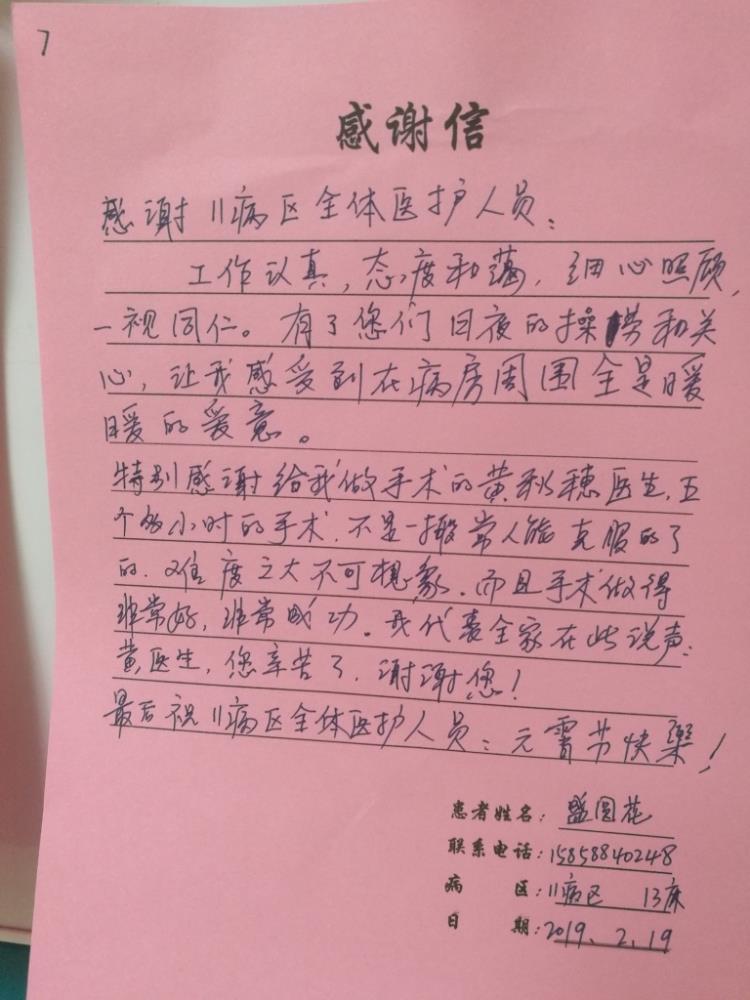 7
感谢信
感谢11病区全体医护人员:
工作认真,态度和蔼,细心照顾,
一视同仁。有了您们日夜的操劳和关
心,让我感受到在病房周围全是暖
暖的爱意。
特别感谢给我做手术的黄秋穗医生,五
个多小时的手术,不是一般常人能克服的了
的,难度之大不可想象,而且手术做得
非常好,非常成功。我代表全家在此说声:
黄医生,您辛苦了,谢谢您!
最后祝11病区全体医护人员:元宵节快樂!
患者姓名:盛圆花
联系电话:15858840248
病 区:11病区 13床
日 期:2019.2.19